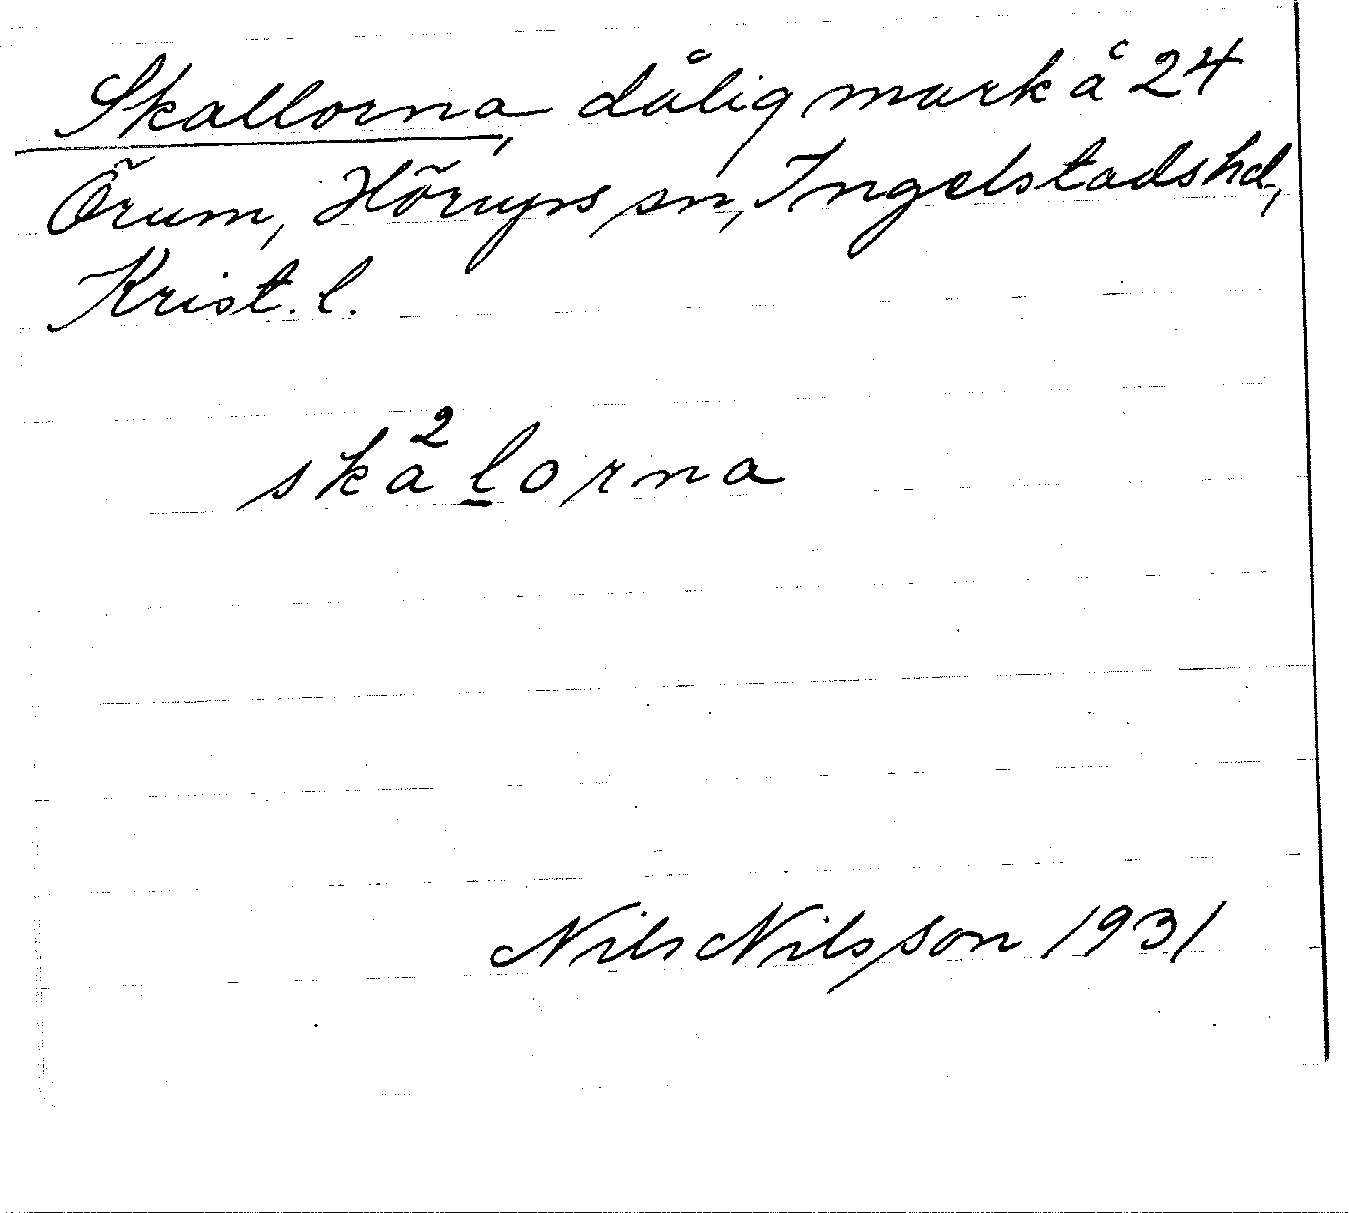 Skallorna, dålig mark å 24
Örum, Hörups sn, Ingelstads hd,
Krist. l.
ska²lorna
Nils Nilsson 1931